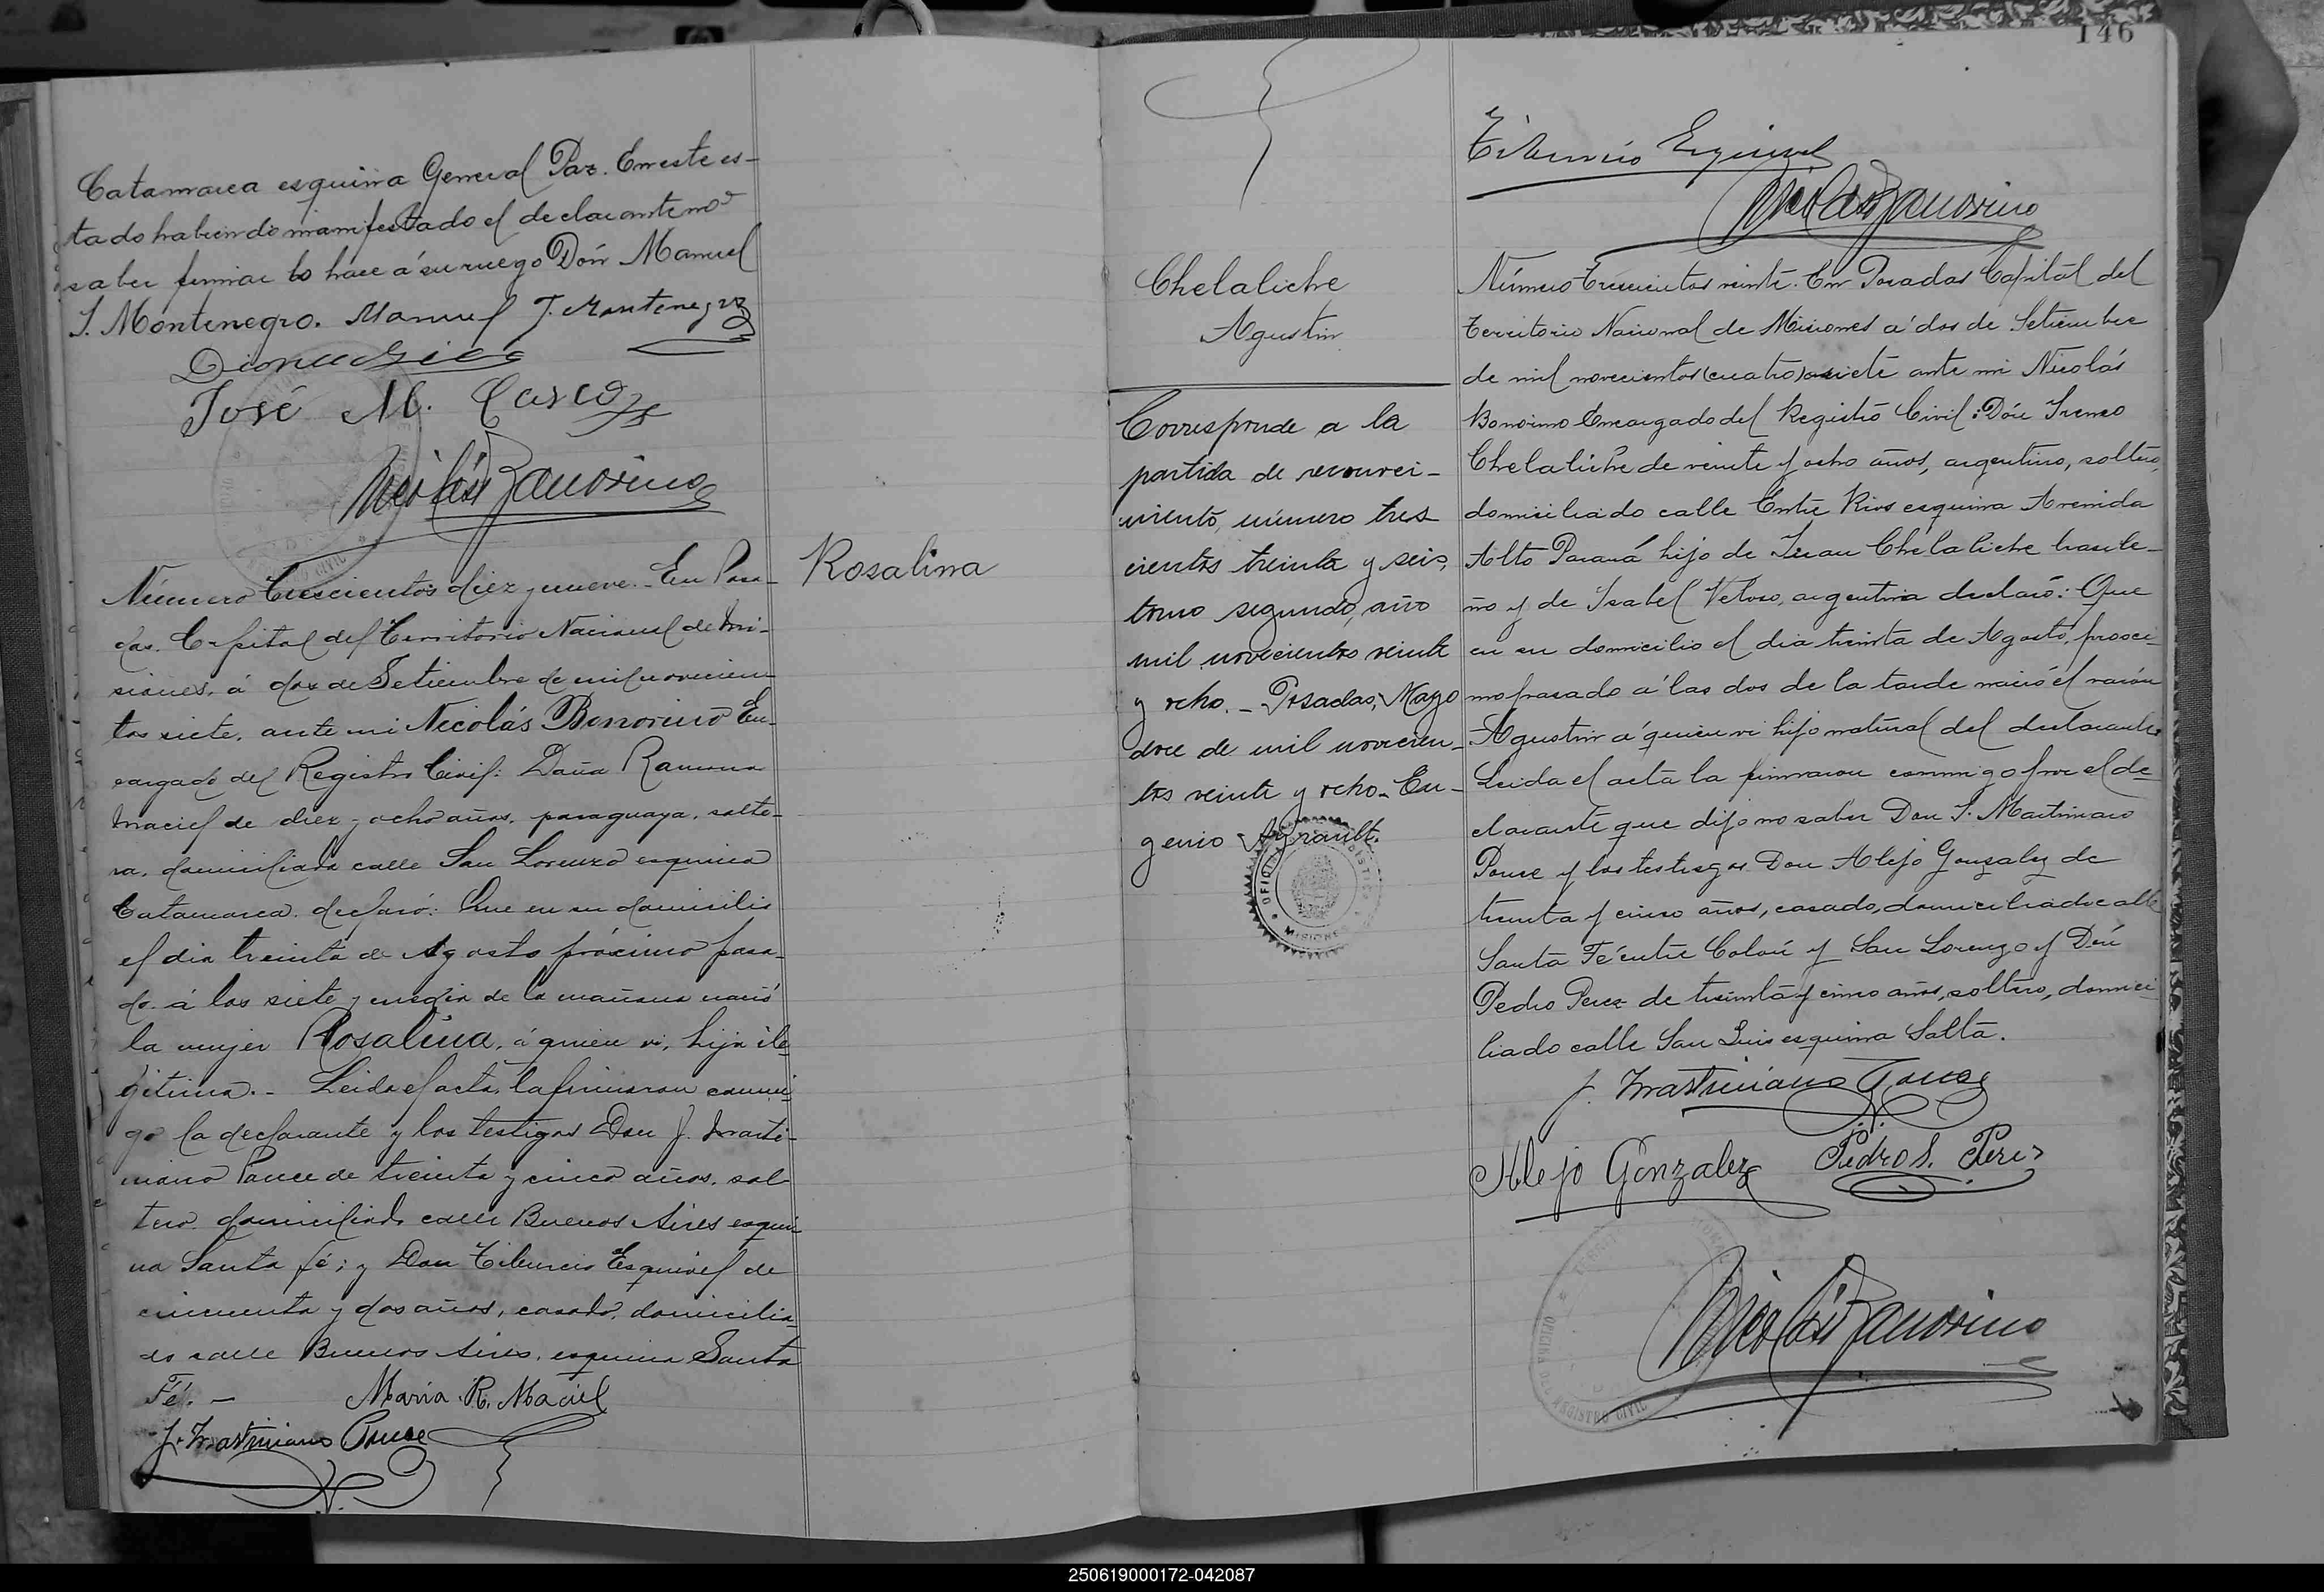 146
Catamarca esquina General Paz. En este es-
tado habiendo manifestado el declarante no
saber firmar lo hace a' su ruego Dón Manuel
J. Montenegro. Manuel J. Montenegro
José M. Casco
Nicolás Bonorino
Número Trescientos diez y nueve. En Posa-
das. Capital del Territorio Nacional de Mi-
siones, á dos de Setiembre de mil novecien-
tos siete, ante mi Nicolás Bonorino En-
cargado del Registro Civil: Doña Ramona
Maciel de diez y ocho años, paraguaya, solte-
ra, domiciliada calle San Lorenzo esquina
Catamarca, declaró: Que en su domicilio
el dia treinta de Agosto próximo pasa-
do á las siete y media de la mañana nació
la mujer Rosalina, á quien vi, hija ile-
gitima. - Leida el acta, la firmaron conmi-
go la declarante y los testigos Don J. Marti-
niano Ponce de treinta y cinco años, sol-
tero domiciliado calle Buenos Aires esqui-
na Santa fé; y Don Tiburcio Esquivel de
cincuenta y dos años, casado, domicilia-
do calle Buenos Aires, esquina Santa
Fé. - Maria R. Maciel
J. Martiniano Ponce
Rosalina
Tiburcio Esquivel
Nicolás Bonorino
Chelaliche
Agustin
Corresponde a la
partida de reconoci-
miento, número tres
cientos treinta y seis,
tomo segundo, año
mil novecientos veinte
y ocho. - Posadas, Mayo
doce de mil novecien-
tos veinte y ocho. Eu-
genio
OFICINA
MISIONES
Número Trescientos veinte. En Posadas Capital del
territorio Nacional de Misiones a' dos de Setiembre
de mil novecientos (cuatro) siete ante mi Nicolás
Bonorino Encargado del Registro Civil: Dón Ireneo
Chelaliche de veinte y ocho años, argentino, soltero,
domiciliado calle Entre Rios esquina Avenida
Alto Paraná hijo de Juan Chelaliche brasile-
ño y de Isabel Veloso, argentina declaró: Que
en su domicilio el dia treinta de Agosto, proxi-
mo pasado a' las dos de la tarde nació el varón
Agustin a' quien vi hijo natural del declarante.
Leida el acta la firmaron conmigo por el de
clarante que dijo no saber Don J. Martiniano
Ponce y los testigos Don Alejo Gonzalez de
treinta y cinco años, casado, domiciliado calle
Santa Fé entre Colón y San Lorenzo y Dón
Pedro Perez de treinta y cinco años, soltero, domici-
liado calle San Luis esquina Salta.
J. Martiniano Ponce
Alejo Gonzalez Pedro S. Perez
Nicolás Bonorino
REGISTRO CIVIL
250619000172-042087